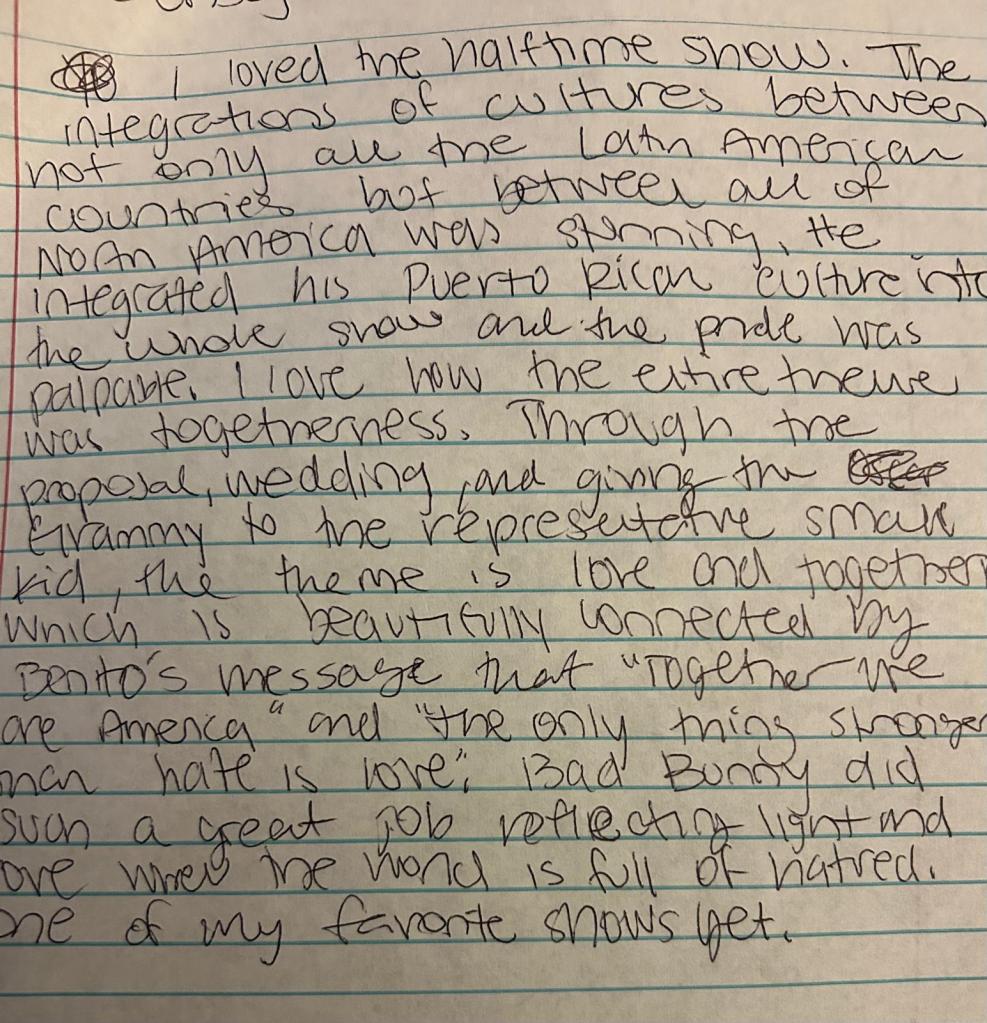 I loved the halftime show. The
integrations of cultures between
not only all the Latin American
countries but between all of
North America was stunning. He
integrated his Puerto Rican culture into
the whole show and the pride was
palpable. I love how the entire theme
was togetherness. Through the
proposal, wedding, and giving the
Grammy to the representative small
kid, the theme is love and together
which is beautifully connected by
Benito's message that "Together we
are America" and "the only thing stronger
than hate is love". Bad Bunny did
such a great job reflecting light and
love when the world is full of hatred.
One of my favorite shows yet.